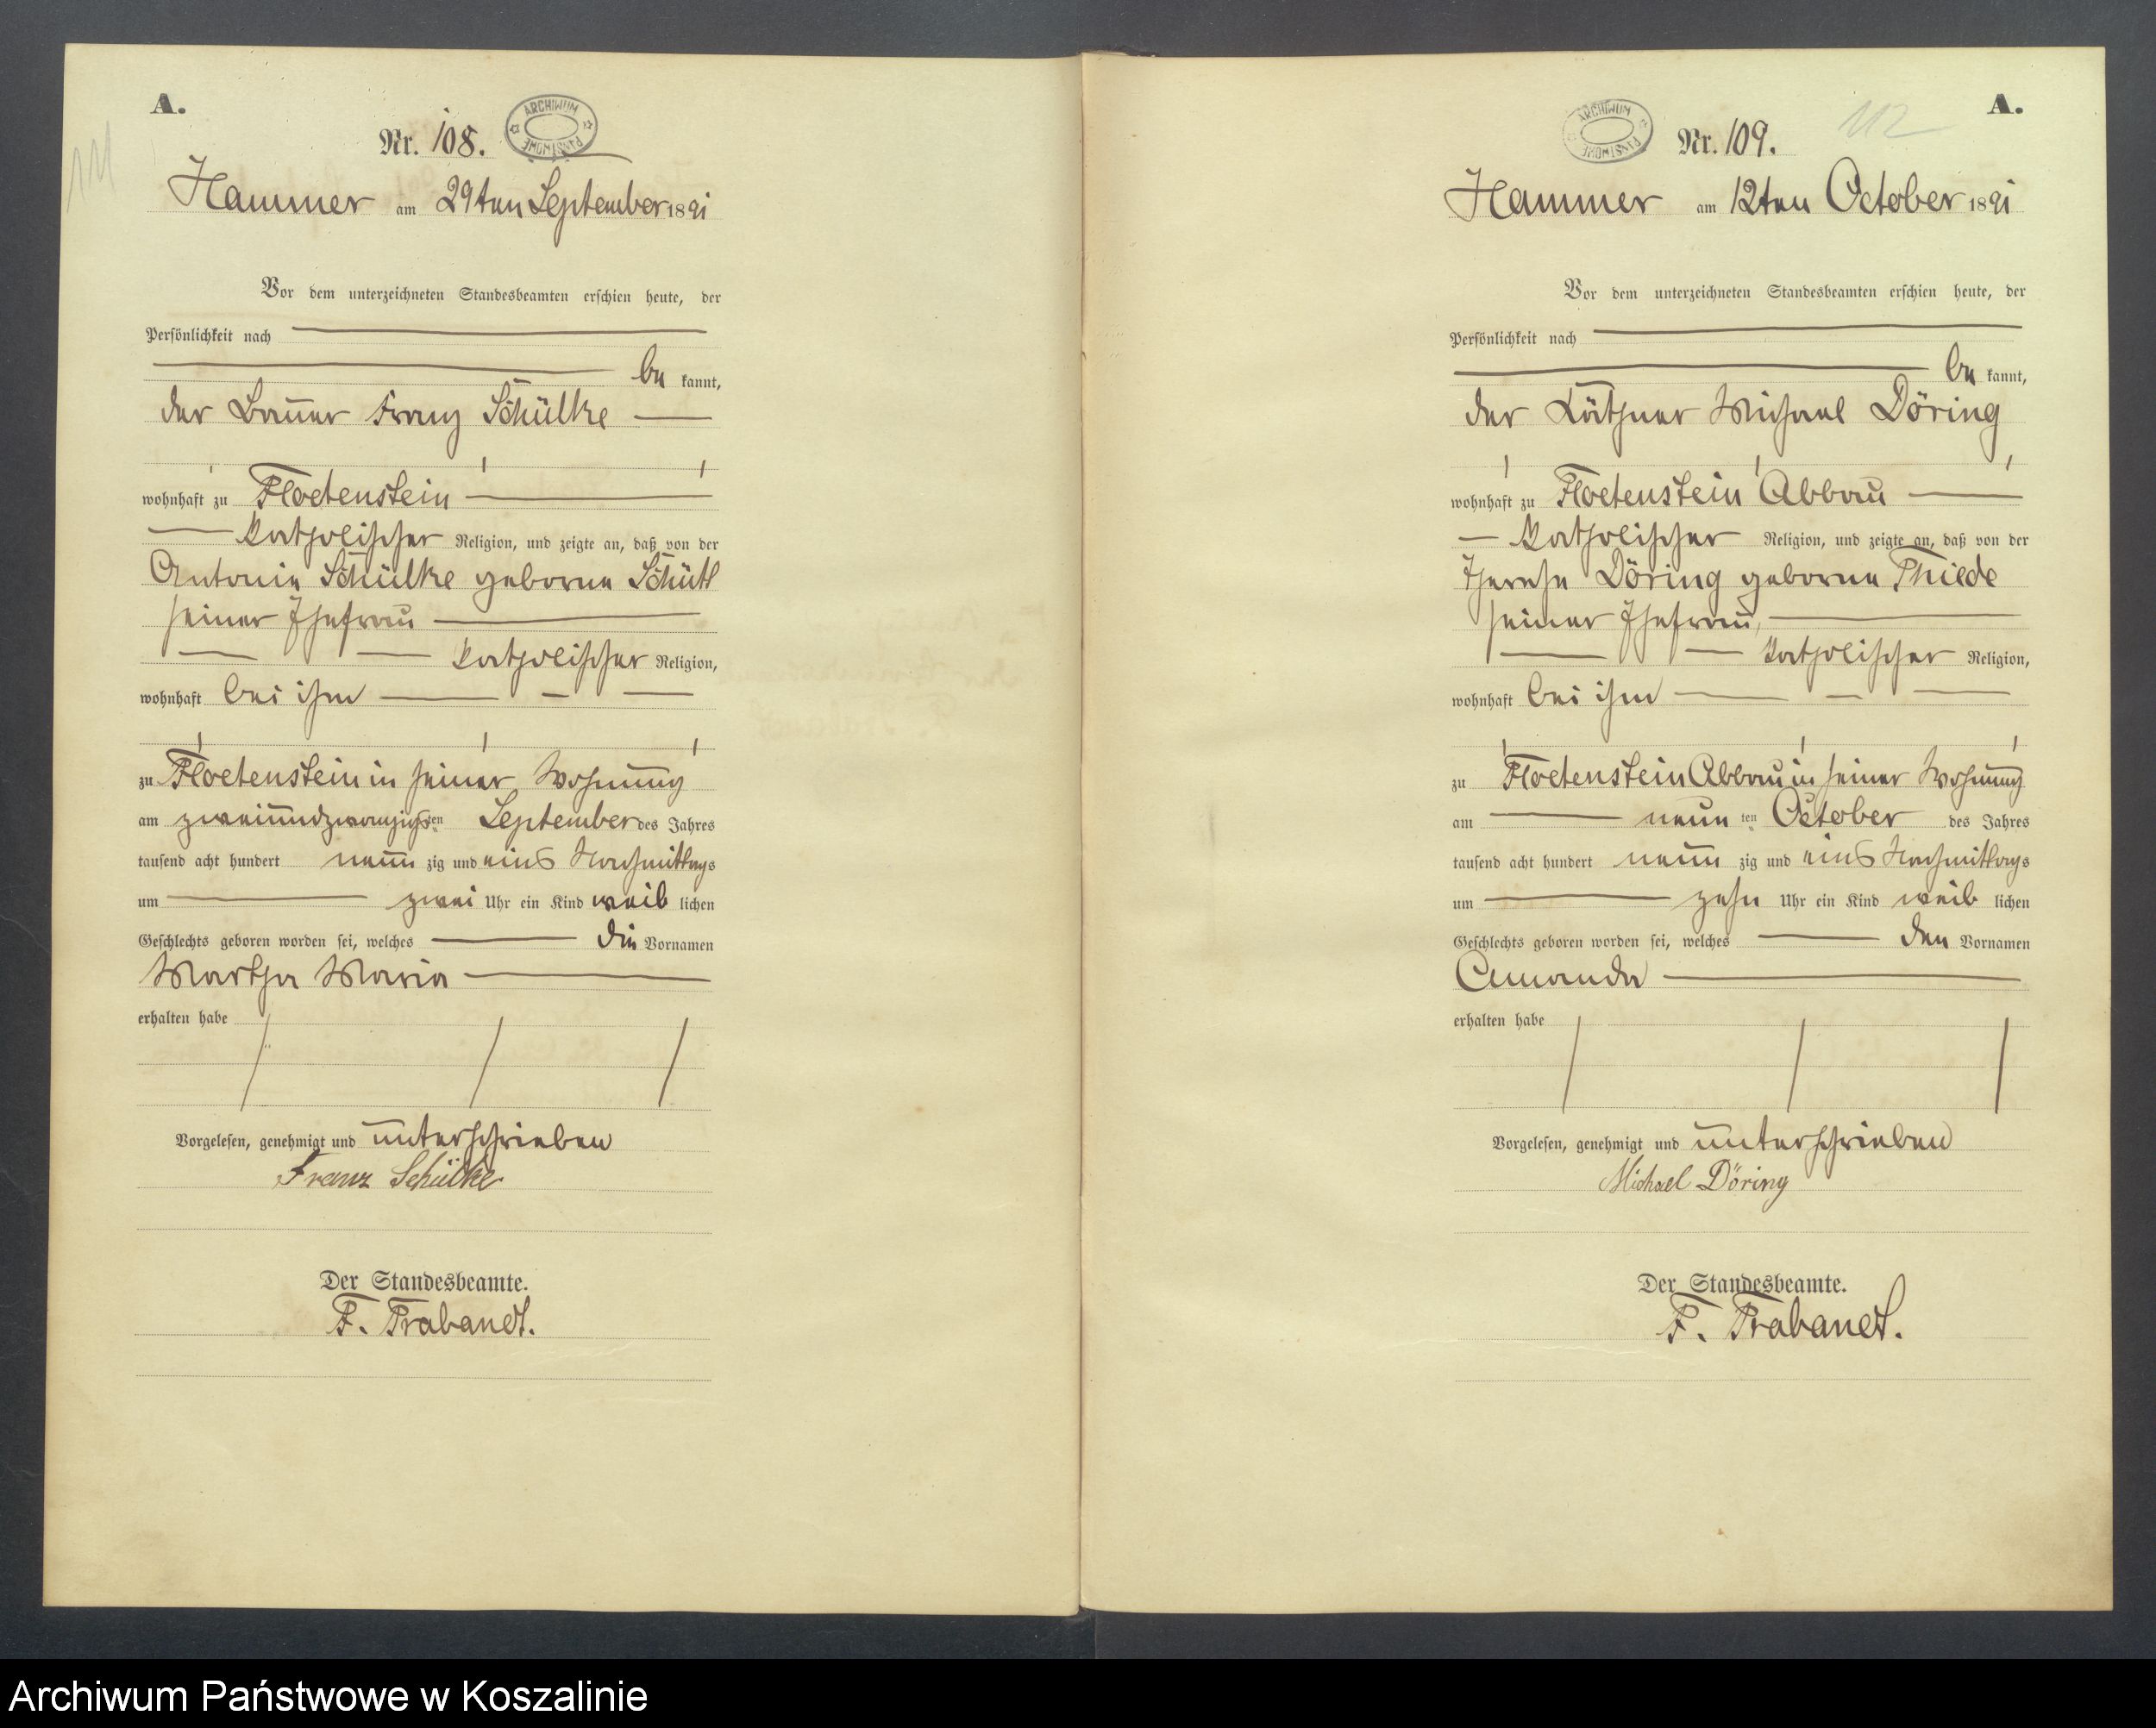 A.
111
Nr. 108.
ARCHIWUM PAŃSTWOWE
Hammer am 29ten September 1891
Vor dem unterzeichneten Standesbeamten erschien heute, der
Persönlichkeit nach
be kannt,
der Bauer Franz Schülke
wohnhaft zu Floetenstein
katholischer Religion, und zeigte an, daß von der
Antonie Schülke geborne Schütt
seiner Ehefrau
katholischer Religion,
wohnhaft bei ihm
zu Floetenstein in seiner Wohnung
am zweiundzwanzigsten September des Jahres
tausend acht hundert neun zig und eins Nachmittags
um zwei Uhr ein Kind weib lichen
Geschlechts geboren worden sei, welches die Vornamen
Martha Maria
erhalten habe
Vorgelesen, genehmigt und unterschrieben
Franz Schülke
Der Standesbeamte.
F. Trabandt.
A.
112
ARCHIWUM PAŃSTWOWE
Nr. 109.
Hammer am 12ten October 1891
Vor dem unterzeichneten Standesbeamten erschien heute, der
Persönlichkeit nach
be kannt,
der Käthner Michael Döring
wohnhaft zu Floetenstein Abbau
katholischer Religion, und zeigte an, daß von der
Therese Döring geborne Thiede
seiner Ehefrau,
katholischer Religion,
wohnhaft bei ihm
zu Floetenstein Abbau in seiner Wohnung
am neun ten October des Jahres
tausend acht hundert neun zig und eins Nachmittags
um zehn Uhr ein Kind weib lichen
Geschlechts geboren worden sei, welches den Vornamen
Amanda
erhalten habe
Vorgelesen, genehmigt und unterschrieben
Michael Döring
Der Standesbeamte.
F. Trabandt.
Archiwum Państwowe w Koszalinie